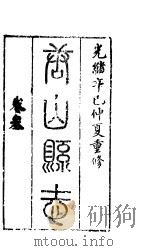 光緒辛巳仲夏重修
唐山縣志
卷叁
mtoou.info